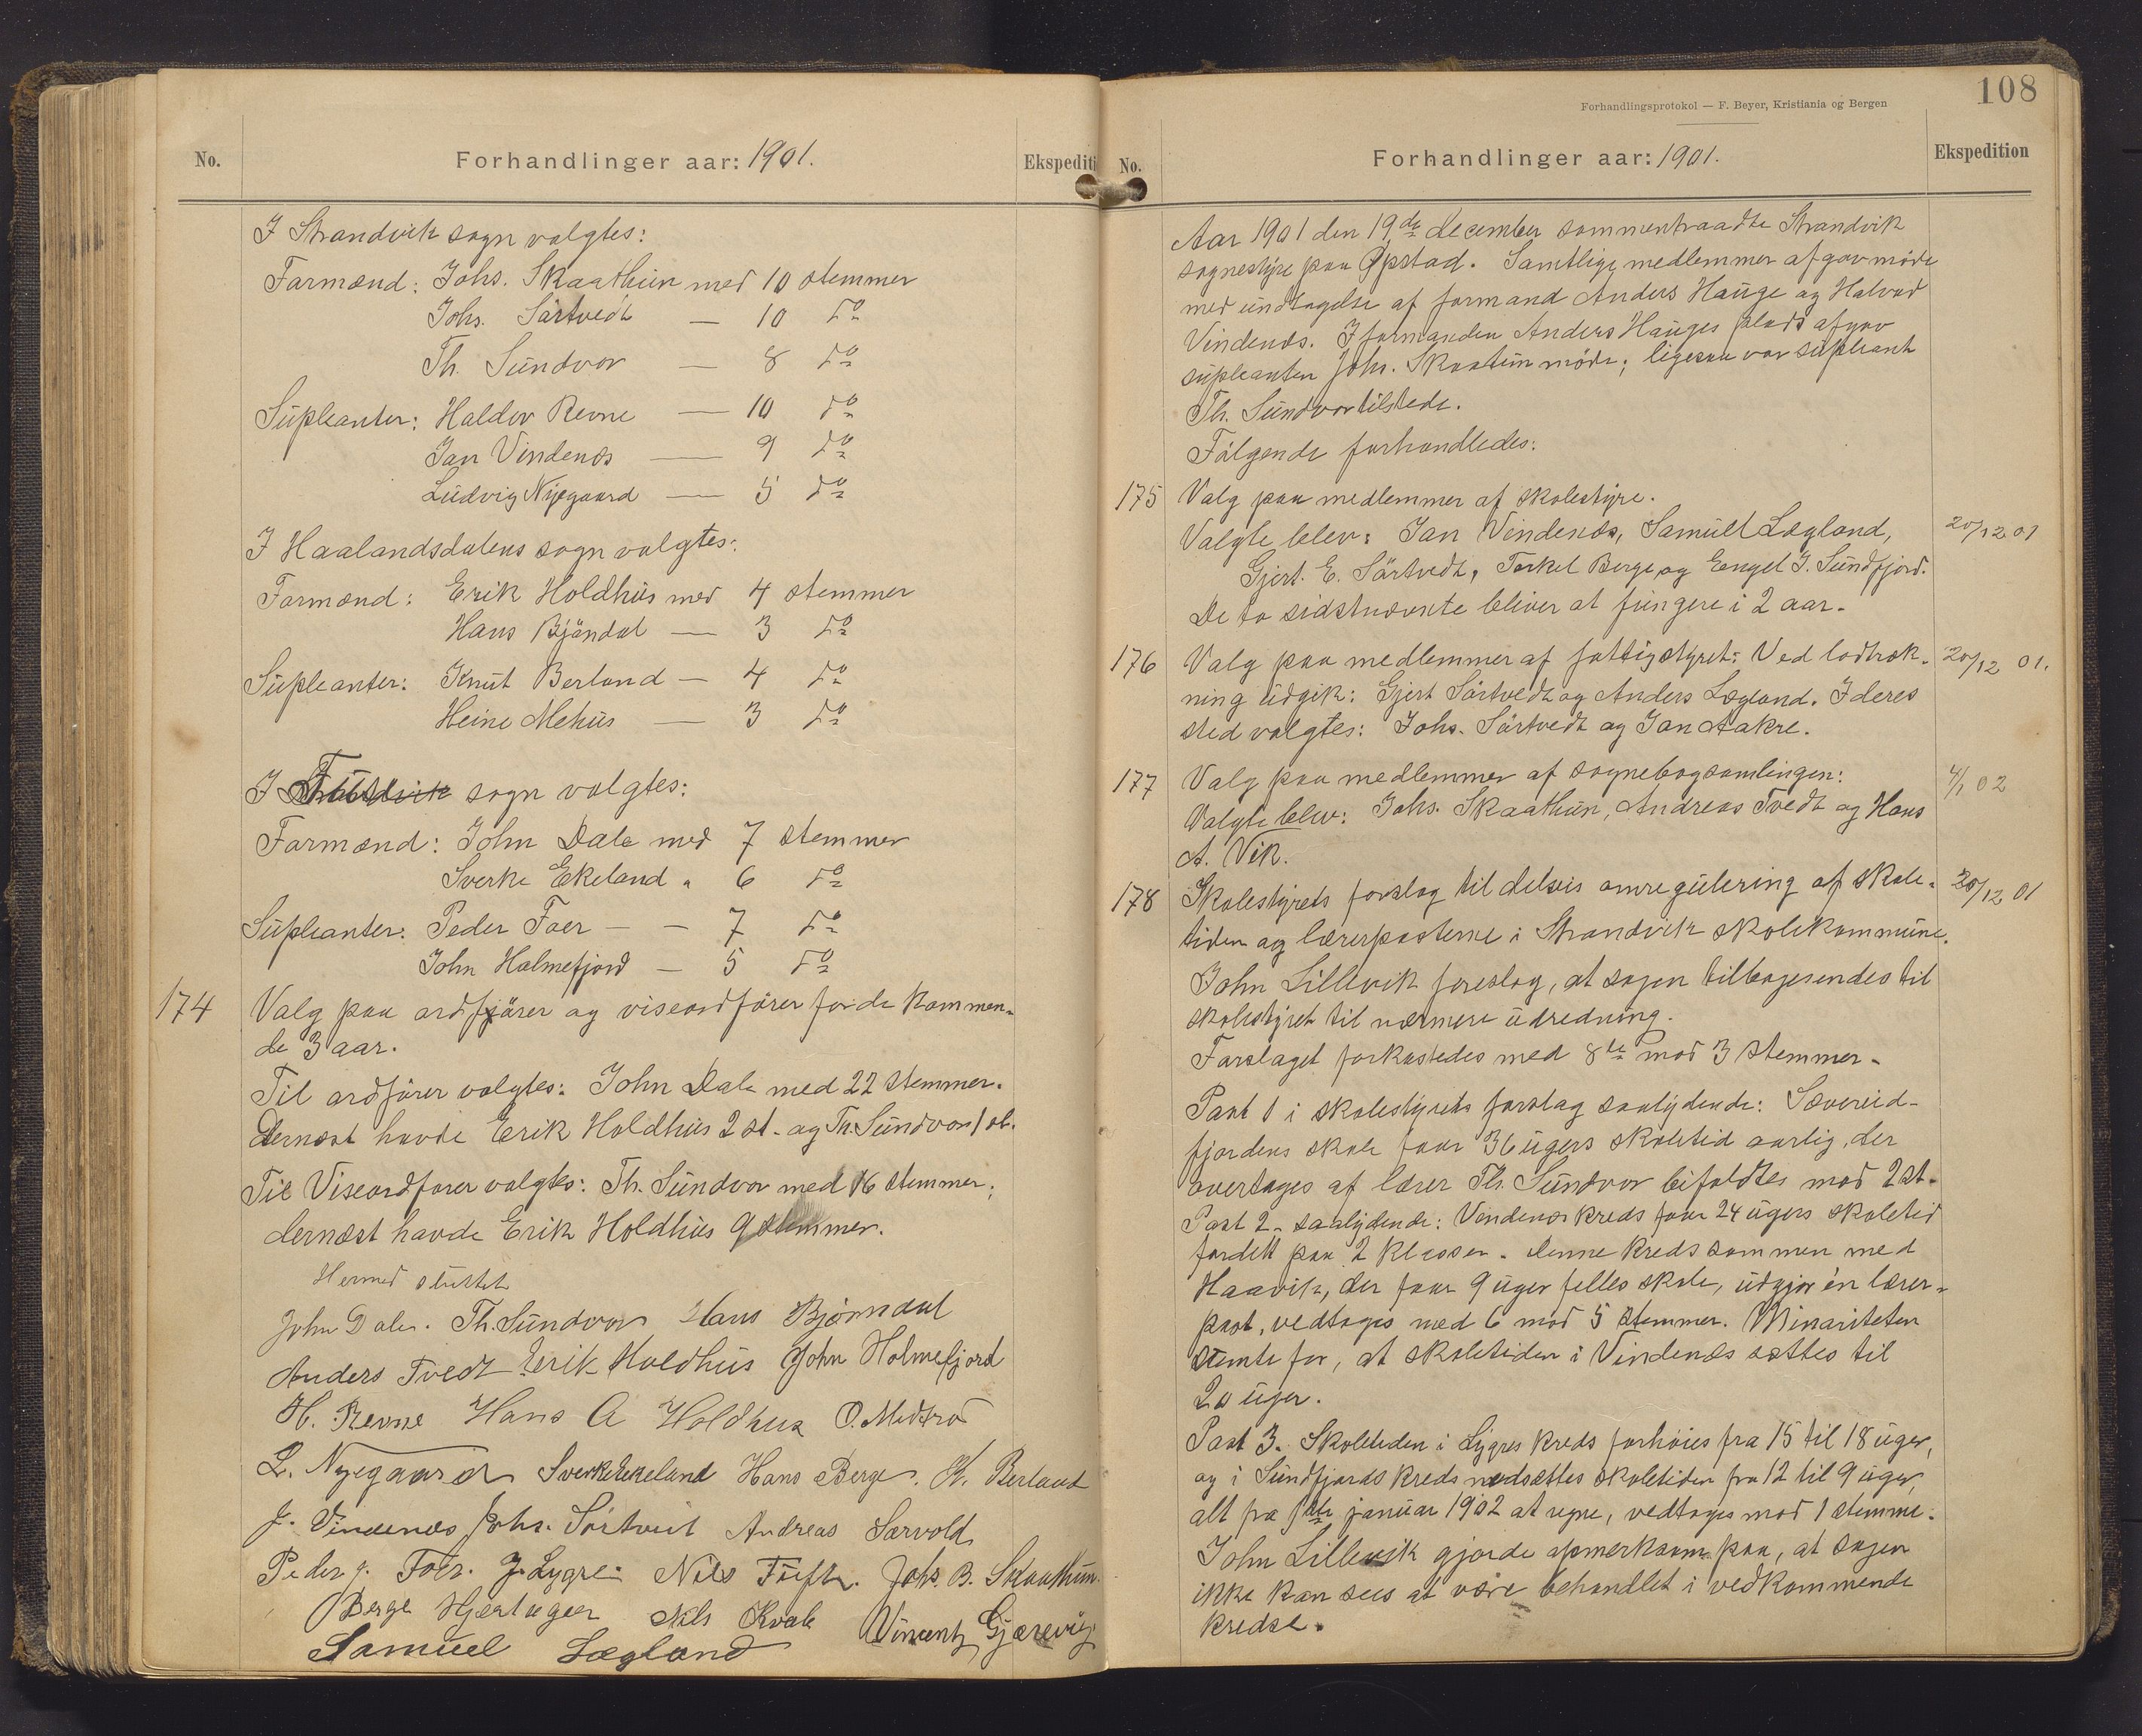 No.
Forhandlinger aar: 1901.
Ekspediti
I Strandvik sogn valgtes:
Formænd: Johs. Skaathun med 10 stemmer
Johs. Sörtvedt — 10 do
Th. Sundvor — 8 do
Supleanter: Haldor Revne — 10 do
Jan Vindenæs — 9 do
Ludvig Nygaard — 5 do
I Haalandsdalens sogn valgtes:
Formænd: Erik Holdhus med 4 stemmer
Hans Bjöndal — 3 do
Supleanter: Knut Berland — 4 do
Heine Mehus — 3 do
I sogn valgtes:
Formænd: John Dale med 7 stemmer
Sverke Ekeland " 6 do
Supleanter: Peder Foer — — 7 do
John Holmefjord — 5 do
174 Valg paa ordförer og viseordförer for de kommen-
de 3 aar.
Til ordförer valgtes: John Dale med 22 stemmer.
Dernæst havde Erik Holdhus 2 st. og Th. Sundvor 1 st.
Til Viseordförer valgtes: Th. Sundvor med 16 stemmer;
dernæst havde Erik Holdhus 9 stemmer.
Hermed sluttet
John Dale. Th. Sundvor Hans Bjørndal
Anders Tvedt Erik Holdhus John Holmefjord
H. Revne Hans A Holdhus O. Medtrod
L. Nygaard Sverke Ekeland Hans Berge. K. Berland
J. Vindenæs Johs. Sörtveit Andreas Særvold
Peder J. Foer. J. Lygre. Nils Tufte. Johs. B. Skaathun.
Berge Hjertager Nils Kvale Vincentz Gjærevig
Samuel Lægland
108
Forhandlingsprotokol — F. Beyer, Kristiania og Bergen
No.
Forhandlinger aar: 1901.
Ekspedition
Aar 1901 den 19de december sammentraadte Strandvik
sognestyre paa Opstad. Samtlige medlemmer afgav möde
med undtagelse af formand Anders Hauge og Halvor
Vindenæs. I formanden Anders Hauges plads afgav
supleanten Johs. Skaatun möde; ligesaa var supleant
Th. Sundvor tilstede.
Fölgende forhandledes:
175 Valg paa medlemmer af skolestyre.
Valgte blev: Jan Vindenæs, Samuel Lægland, 20/12 01
Gjert. E. Sörtvedt, Torkel Berge og Engel J. Sundfjord.
De to sidstnævnte bliver at fungere i 2 aar.
176 Valg paa medlemmer af fattigstyret: Ved lodtræk- 20/12 01.
ning udgik: Gjert Sörtvedt og Anders Lægland. I deres
sted valgtes: Johs. Sörtvedt og Jan Aakre.
177 Valg paa medlemmer af sognebogsamlingen: 4/1 02
Valgte blev: Johs. Skaathun, Andreas Tvedt og Hans
A. Vik.
178 Skolestyrets forslag til delvis omregulering af skole- 20/12 01
tiden og lærerposterne i Strandvik skolekommune.
John Lillevik foreslog, at sagen tilbagesendes til
skolestyret til nærmere udredning.
Forslaget forkastedes med 8te mod 3 stemmer.
Post 1 i skolestyrets forslag saalydende: Sævereid-
fjordens skole faar 36 ugers skoletid aarlig, der
overtages af lærer Th. Sundvor bifaldtes mod 2 st.
Post 2. saalydende: Vindenæs kreds faar 24 ugers skoletid
fordelt paa 2 klasser. denne kreds sammen med
Haavik, der faar 9 uger felles skole, udgjør én lærer-
post, vedtoges med 6 mod 5 stemmer. Minoriteten
stemte for, at skoletiden i Vindenæs sættes til
20 uger.
Post 3. Skoletiden i Lygres kreds forhöies fra 15 til 18 uger,
og i Sundfjords kreds nedsættes skoletiden fra 12 til 9 uger,
alt fra 1ste januar 1902 at regne, vedtoges mod 1 stemme.
John Lillevik gjorde opmerksom paa, at sagen
ikke kan sees at være behandlet i vedkommende
kredse.